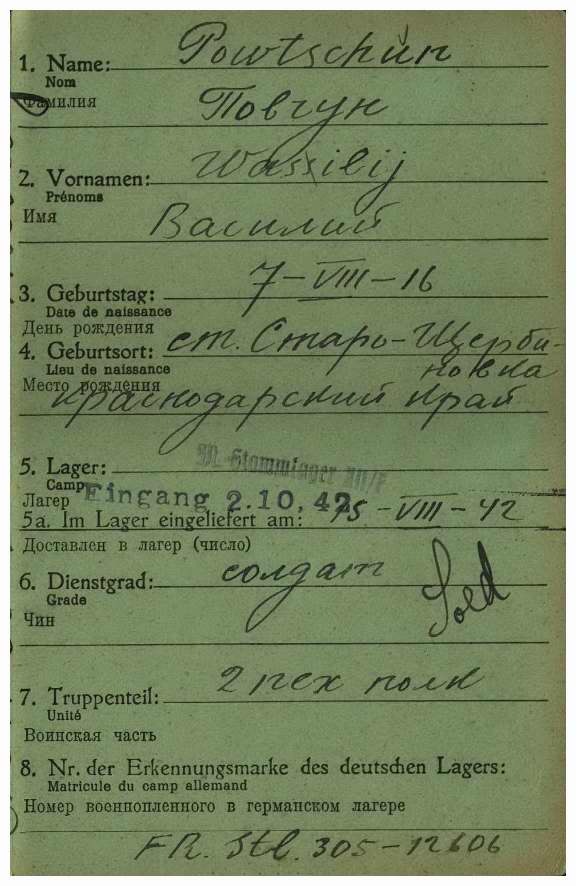 1. Name: Powtschun
Nom
Фамилия Повчун
2. Vornamen: Wassilij
Prénoms
Имя
Василий
3. Geburtstag: 7-VIII-16
Date de naissance
День рождения
4. Geburtsort: ст. Старо-Щерби-
Lieu de naissance новка
Место рождения
Краснодарский Край
5. Lager: M.-Stammlager
Camp
Лагер Eingang 2.10.42
5a. Im Lager eingeliefert am: 15-VIII-42
Доставлен в лагер (число)
6. Dienstgrad: солдат
Grade Sold
Чин
7. Truppenteil: 2 пех полк
Unité
Воинская часть
8. Nr. der Erkennungsmarke des deutschen Lagers:
Matricule du camp allemand
Номер военнопленного в германском лагере
FR. Stl. 305-12606